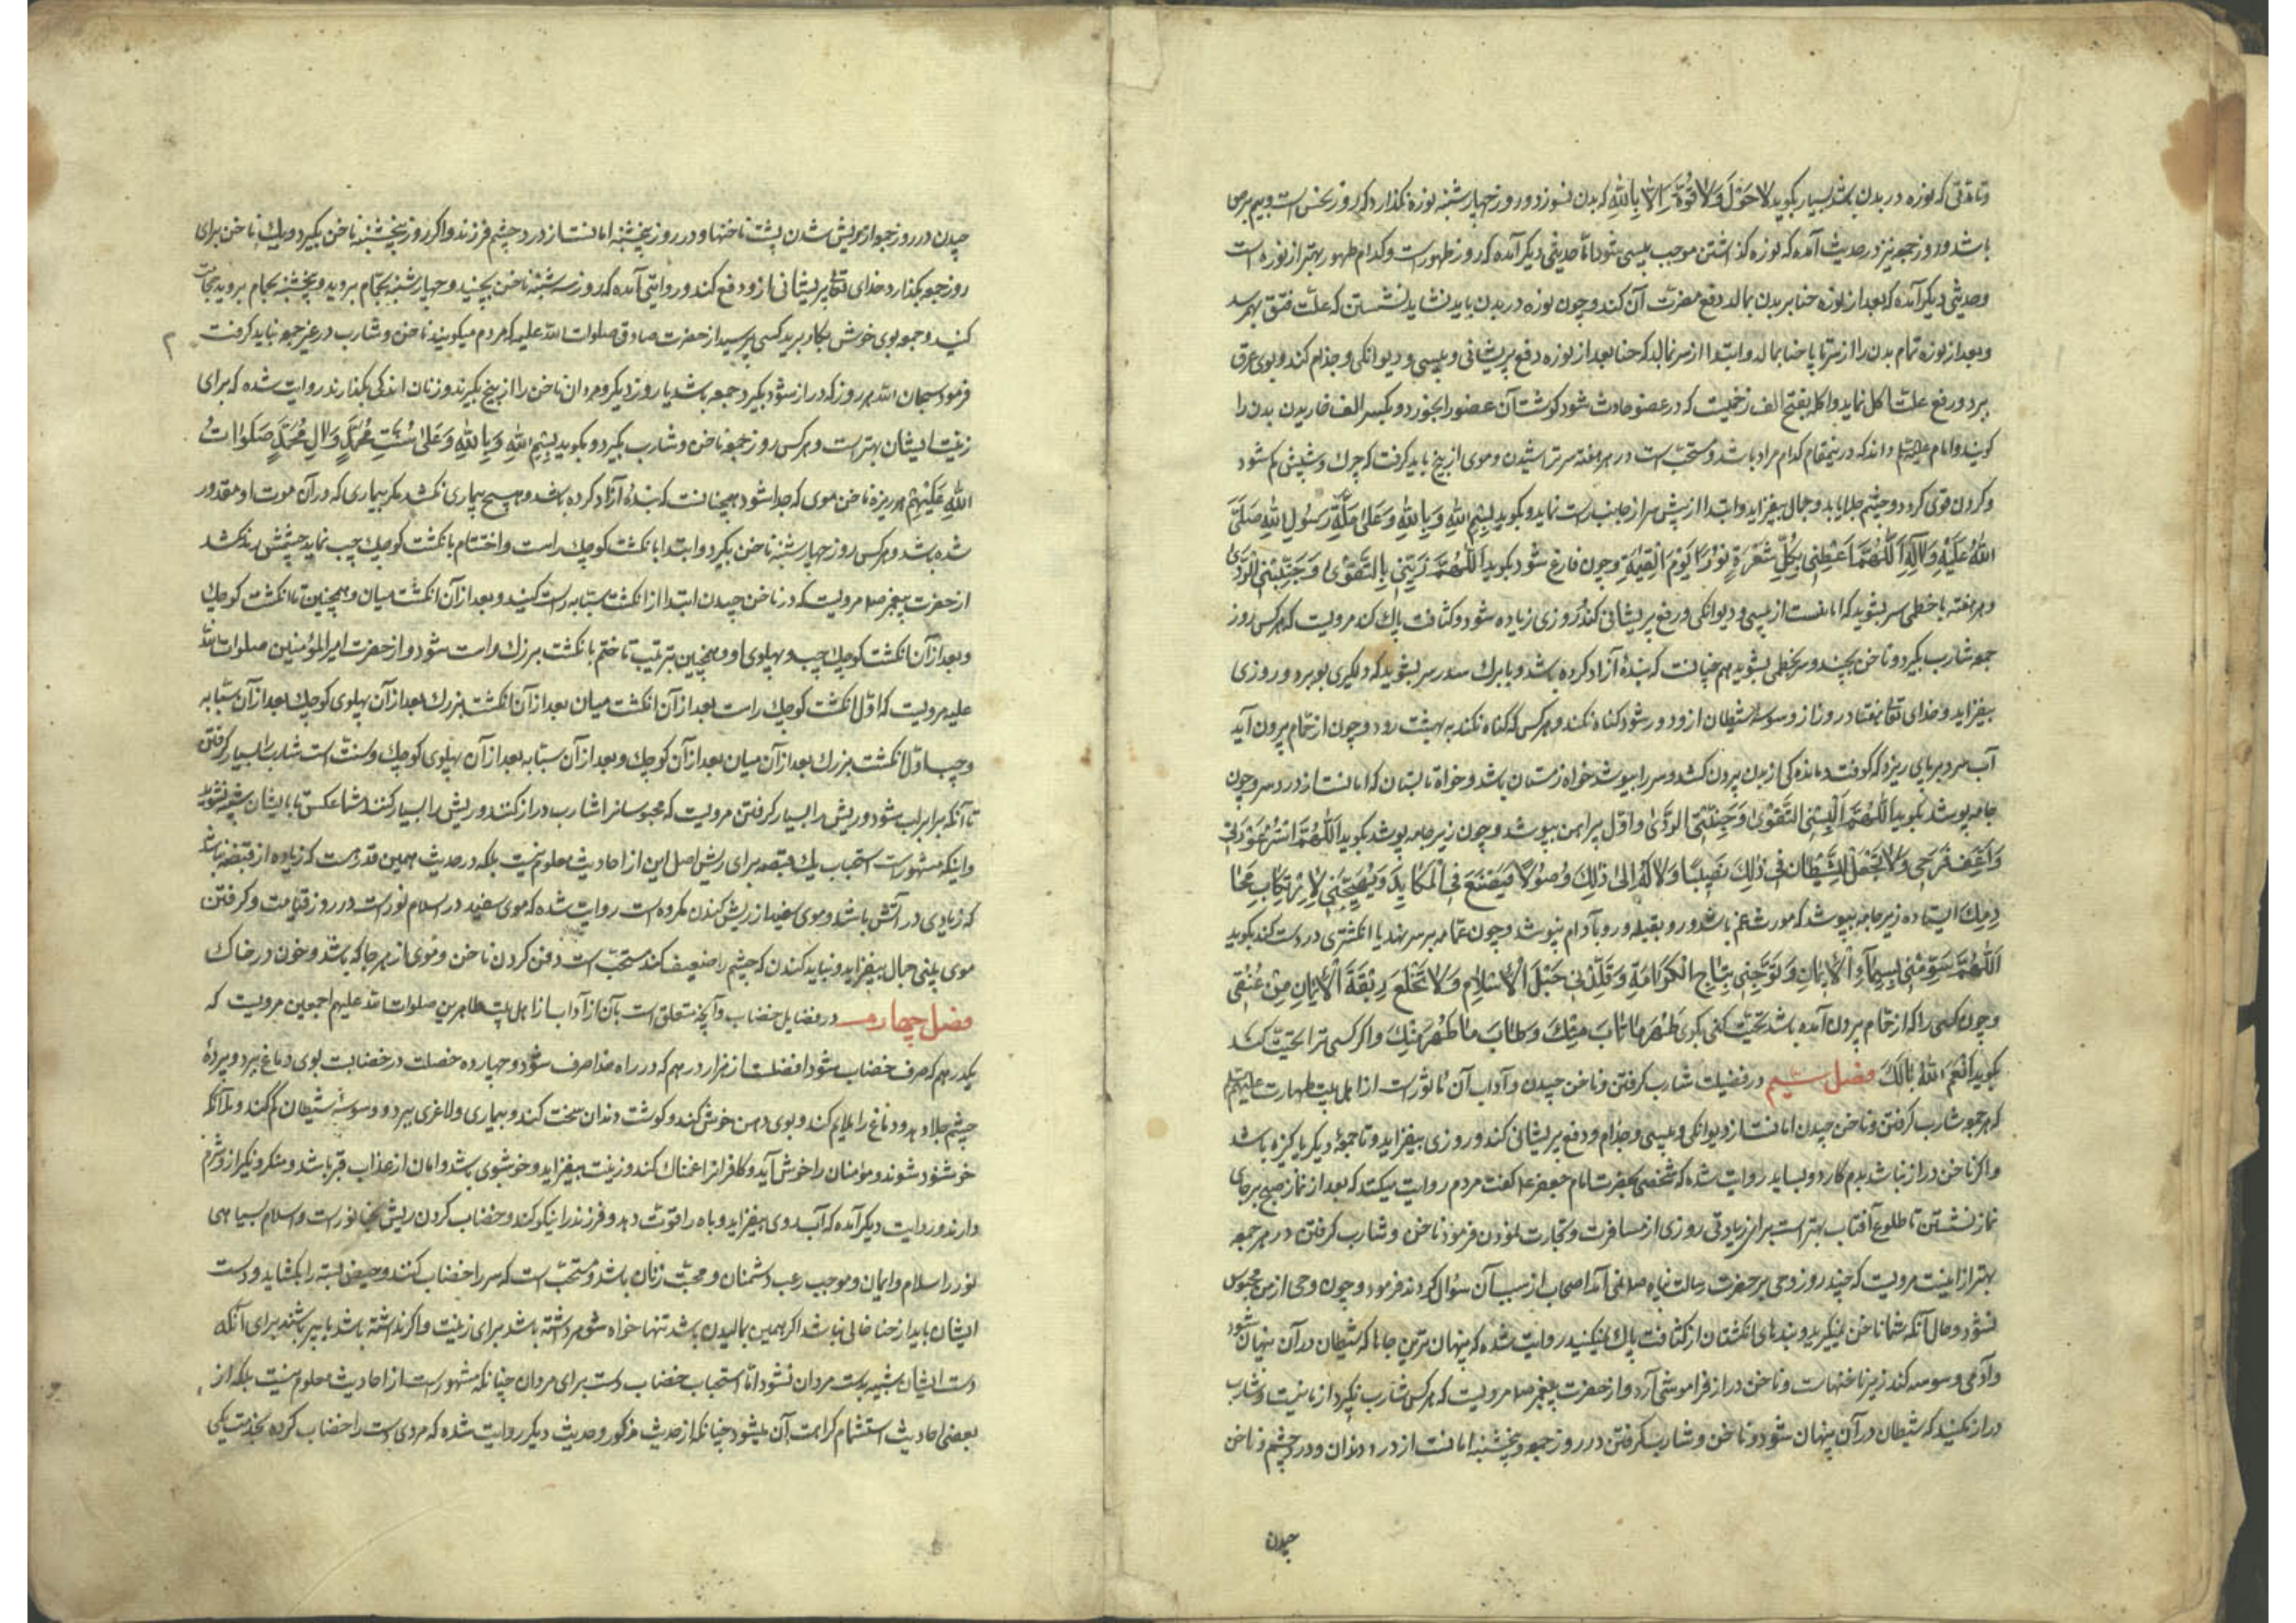 و تا مدتی که نوزه در بدن باشد بسیار بکوید لا حَوْلَ وَلا قُوَّةَ اِلّا بِاللهِ که بدن نسوزد و روز چهارشنبه نوره نکذارد که روز نحس است و بیم برص
باشد و روز جمعه نیز در حدیث آمده که نوره کذاشتن موجب پیسی شود اما حدیثی دیکر آمده که روز طهور است و کدام طهور بهتر از نوره است
و حدیثی دیکر آمده که بعد از نوزه حنا بر بدن بمالد دفع مضرت آن کند و چون نوزه در بدن باید نشاید نشستن که علّت فتق بهم رسد
و بعد از نوزه تمام بدن را از سر تا پا حنا بمالد و ابتدا از سر نمالد که حنا بعد از نوزه دفع پریشانی و پیسی و دیوانکی و جذام کند و بوی عرق
ببرد و رفع علت اکله نماید و اکله بفتح الف زخمیست که در عضو حادث شود کوشت آن عضو را بخورد و بکسر الف خاریدن بدن را
کویند و امام داند که درینمقام کدام مراد باشد و مستحبّ است در هر هفته سر تراشیدن و موی از بیخ باید کرفت که چرك و شپش کم شود
و کردن قوی کردد و چشم جلا یابد و جمال بیفزاید و ابتدا از پیش سر از جانب راست نماید و بکوید بِسْمِ اللهِ وَبِاللهِ وَعَلیٰ مِلَّةِ رَسُولِ اللهِ صَلَّی
اللهُ عَلَیْهِ وَآلِهِ اَللّٰهُمَّ اَعْطِنی بِکُلِّ شَعْرَةٍ نُورًا یَوْمَ الْقِیٰمَةِ و چون فارغ شود بکوید اَللّٰهُمَّ زَیِّنّی بِالتَّقْویٰ وَجَنِّبْنِی الرَّدیٰ
و هر هفته با خطمی سر بشوید که امانست از پیسی و دیوانکی و رفع پریشانی کند و روزی زیاده شود و کثافت پاك کند مرویست که هر کس روز
جمعه شارب بکیرد و ناخن بچیند و سر بخطمی بشوید هم چنانست که بندهٔ آزاد کرده باشد و با برك سدر سر بشوید که دلکیری ببرد و روزی
بیفزاید و خدای تعالی هفتاد روز از وسوسهٔ شیطان ازو دور شود کناه نکند و هر کس که کناه نکند به بهشت رود و چون از حمّام بیرون آید
آب سرد بر پای ریزد که کوفت و ماندکی از بدن بیرون کشد و سر را بپوشد خواه زمستان باشد و خواه تابستان که امانست از درد سر و چون
جامه پوشد بکوید اَللّٰهُمَّ اَلْبِسْنِی التَّقْویٰ وَجَنِّبْنِی الرَّدیٰ و اوّل پیراهن بپوشد و چون زیر جامه پوشد بکوید اَللّٰهُمَّ اسْتُرْ عَوْرَتی
وَاَعِفَّ فَرَجی وَلا تَجْعَلْ لِلشَّیْطانِ فی ذٰلِكَ نَصیبًا وَلا لَهُ اِلیٰ ذٰلِكَ وُصُولًا فَیَصْنَعَ فِی الْمَکایِدَ وَیُهَیِّجَنی لِارْتِکابِ مَحا
رِمِكَ ایستاده زیر جامه نپوشد که مورث غم باشد و رو بقبله و رو بآدم نپوشد و چون عمامه بر سر نهد یا انکشتری در دست کند بکوید
اَللّٰهُمَّ سَوِّمْنی بِسیماءِ الْاِیمانِ وَتَوِّجْنی بِتاجِ الْکَرامَةِ وَقَلِّدْنی حَبْلَ الْاِسْلامِ وَلا تَخْلَعْ رِبْقَةَ الْاِیمانِ مِنْ عُنُقی
و چون کسی را که از حمّام بیرون آمده باشد تحیّت کنی بکوی طَهُرَ ما طابَ مِنْكَ وَطابَ ما طَهُرَ مِنْكَ و اکر کسی ترا تحیّت کند
بکوید اَنْعَمَ اللهُ بالَكَ فصل سیّم در فضیلت شارب کرفتن و ناخن چیدن و آداب آن ماثورست از اهل بیت طهارت علیهم
که هر جمعه شارب کرفتن و ناخن چیدن امانست از دیوانکی و پیسی و جذام و دفع پریشانی کند و روزی بیفزاید و تا جمعهٔ دیکر پاکیزه باشد
و اکر ناخن دراز نباشد بدم کارد بساید روایت شده که شخصی بحضرت امام جعفر ع کفت مردم روایت میکنند که بعد از نماز صبح بر جای
نماز نشستن تا طلوع آفتاب بهتر است برای زیادتی روزی از مسافرت و تجارت نمودن فرمود ناخن و شارب کرفتن در هر جمعه
بهتر از اینست مرویست که چند روز وحی بر حضرت رسالت پناه صلعم نمی آمد اصحاب از سبب آن سؤال کردند فرمود و چون وحی از من محبوس
نشود و حال آنکه شما ناخن نمیکیرید و بندهای انکشتان از کثافت پاك نمیکنید روایت شده که پنهان ترین جاها که شیطان در آن پنهان شود
و آدمی وسوسه کند زیر ناخنهاست و ناخن دراز فراموشی آرد و از حضرت پیغمبر صلعم مرویست که هر کس شارب نکیرد از ما نیست و شارب
دراز نکنید که شیطان در آن پنهان شود و ناخن و شارب کرفتن در روز جمعه و پنجشنبه امانست از درد دندان و درد چشم و ناخن
چیدن
چیدن در روز جمعه از پریش شدن پشت ناخنها و در روز پنجشنبه امانست از درد چشم فرزند و اکر روز پنجشنبه ناخن بکیرد و یك ناخن برای
روز جمعه بکذارد خدای تعالی پریشانی ازو دفع کند و روایتی آمده که روز سه شنبه ناخن بچینید و چهارشنبه بحمّام بروید و پنجشنبه حجامت
کنید و جمعه بوی خوش بکار برید کسی پرسید از حضرت صادق صلوات الله علیه که مردم میکویند ناخن و شارب در غیر جمعه نباید کرفت
فرمود سبحان الله هر روز که دراز شود بکیرد جمعه باشد یا روز دیکر و مردان ناخن را از بیخ بکیرند و زنان اندکی بکذارند روایت شده که برای
زینت ایشان بهترست و هر کس روز جمعه ناخن و شارب بکیرد و بکوید بِسْمِ اللهِ وَبِاللهِ وَعَلیٰ سُنَّتِ مُحَمَّدٍ وَآلِ مُحَمَّدٍ صَلَواتُ
اللهِ عَلَیْهِمْ هر ریزهٔ ناخن و موی که جدا شود همچنانست که بندهٔ آزاد کرده باشد و هیچ بیماری نکشد مکر بیماری که در آن موت او مقدور
شده باشد و هر کس روز چهارشنبه ناخن بکیرد و ابتدا بانکشت کوچك راست و اختتام بانکشت کوچك چپ نماید چشمش رمد نکشد
از حضرت پیغمبر صلعم مرویست که در ناخن چیدن ابتدا از انکشت سبّابه راست کنید و بعد از آن انکشت میان و همچنین تا انکشت کوچك
و بعد از آن انکشت کوچك چپ و پهلوی او و همچنین بترتیب تا ختم بانکشت بزرك راست شود و از حضرت امیرالمؤمنین صلوات الله
علیه مرویست که اوّل انکشت کوچك راست بعد از آن انکشت میان بعد از آن انکشت بزرك بعد از آن پهلوی کوچك بعد از آن سبّابه
و چپ اوّل انکشت بزرك بعد از آن میان بعد از آن کوچك و بعد از آن سبّابه بعد از آن پهلوی کوچك و سنّت است شارب بسیار کرفتن
تا آنکه برابر لب شود و ریش را بسیار کرفتن مرویست که مجوسان شارب دراز کنند و ریش را بسیار کنند شما عکس تا بایشان شبیه نشوید
و اینکه مشهورست استحباب یك قبضه برای ریش اصل این از احادیث معلوم نیست بلکه در حدیث همین قدرست که زیاده از قبضه نباشد
که زیادی در آتش باشد و موی سفید از ریش کندن مکروه است روایت شده که موی سفید در اسلام نورست در روز قیامت و کرفتن
موی بینی جمال بیفزاید و نباید کندن که چشم را ضعیف کند مستحبّ است دفن کردن ناخن و موی از هر جا که باشد و خون در خاك
فصل چهارم در فضایل خضاب و آنچه متعلق است بآن از آداب از اهل بیت طاهرین صلوات الله علیهم اجمعین مرویست که
یکدرهم که صرف خضاب شود افضلست از هزار درهم که در راه خدا صرف شود و چهارده خصلت در خضابست بوی دماغ ببرد و پردهٔ
چشم جلا دهد و دماغ را ملایم کند و بوی دهن خوش کند و کوشت دندان سخت کند و بیماری و لاغری ببرد و وسوسهٔ شیطان کم کند و ملائکه
خوشنود شوند و مؤمنان را خوش آید و کافران را غمناك کند و زینت بیفزاید و خوشبوی باشد و امان از عذاب قبر باشد و منکر و نکیر ازو شرم
دارند و روایت دیکر آمده که آب روی بیفزاید و باه را قوّت دهد و فرزند را نیکو کند و خضاب کردن ریش بحنا نورست و اسلام بسیاهی
نور را سلام و ایمان و موجب رعب دشمنان و محبّت زنان باشد و مستحبّ است که سر را خضاب کنند و حیض بسته را بکشاید و دست
ایشان باید از حنا خالی نباشد اکر همین بمالیدن باشد تنها خواه شوهر داشته باشد برای زینت و اکر نداشته باشد یا پیر باشند برای آنکه
دست ایشان شبیه بدست مردان نشود امّا استحباب خضاب دست برای مردان چنانکه مشهورست از احادیث معلوم نیست بلکه از
بعضی احادیث استشمام کراهت آن میشود چنانکه از حدیث مذکور و حدیث دیکر روایت شده که مردی دست را خضاب کرده بخدمت یکی